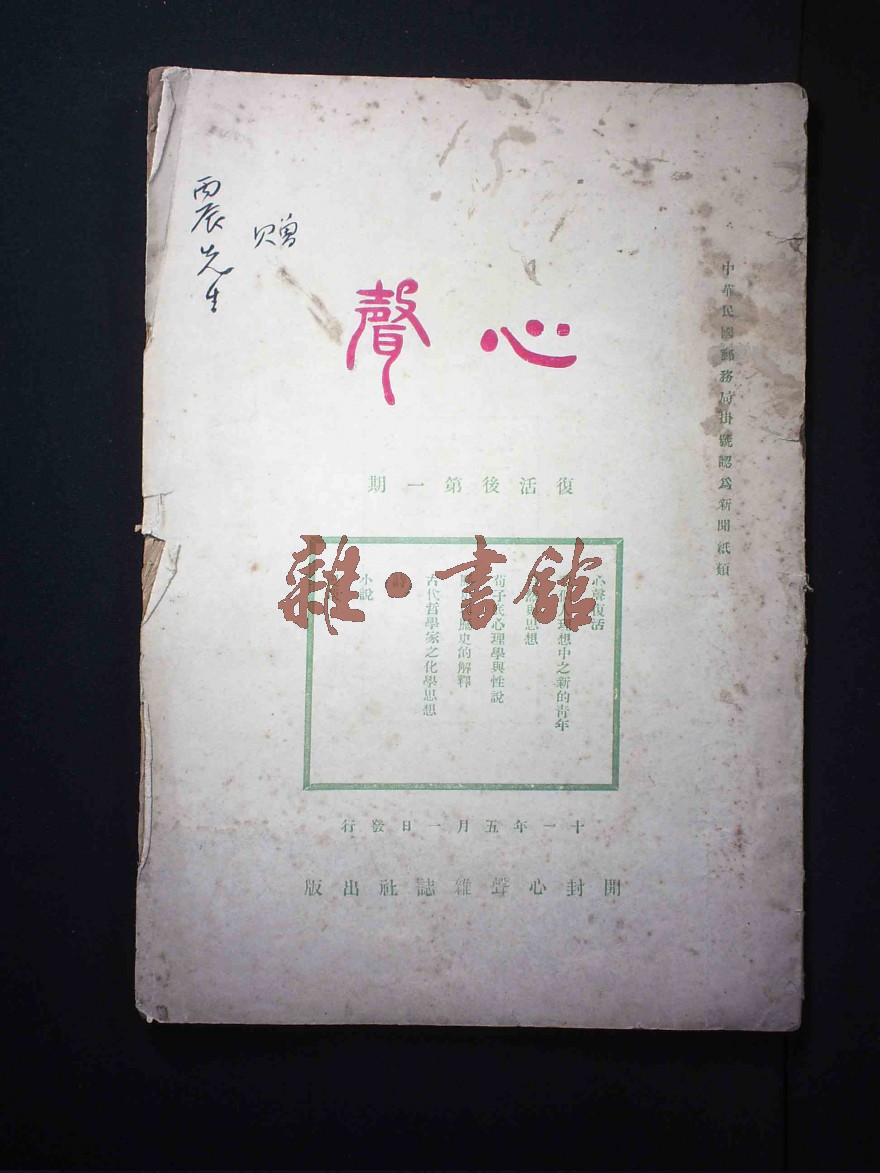 中華民國郵務局掛號認爲新聞紙類
心聲
復活後第一期
心聲復活
理想中之新的青年
思想
荀子底心理學與性說
史的解釋
古代哲學家之化學思想
小說
十一年五月一日發行
開封心聲雜誌社出版
贈
丙辰先生
雜·書館